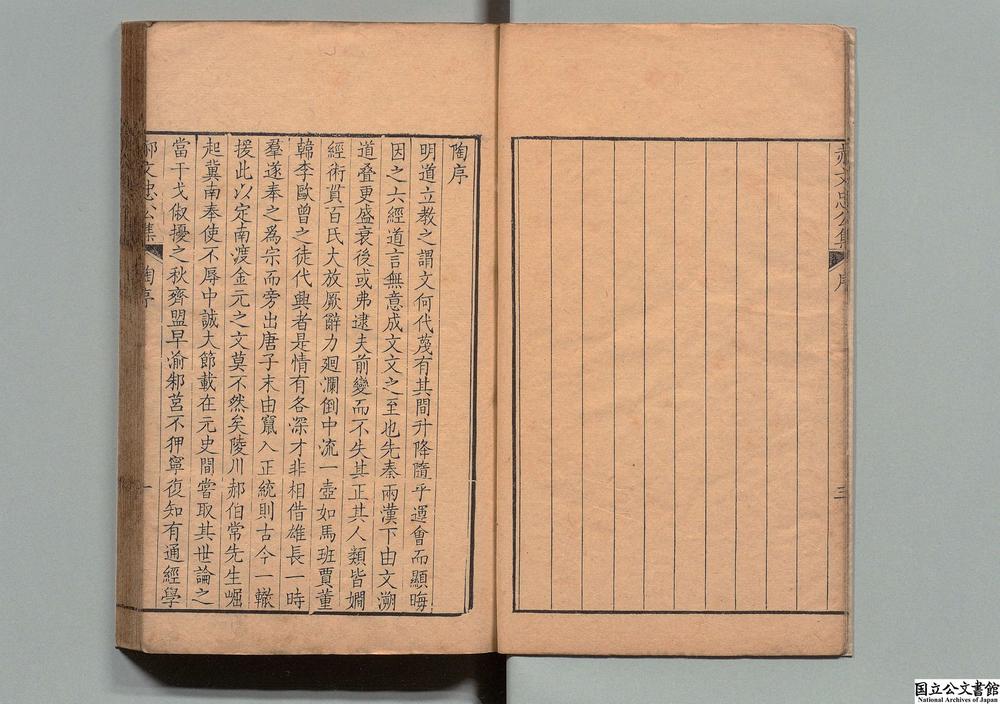 郝文忠公集
序
三
陶序
明道立教之謂文何代蔑有其間升降隨乎運會而顯晦
因之六經道言無意成文文之至也先秦兩漢下由文溯
道疊更盛衰後或弗逮夫前變而不失其正其人類皆嫺
經術貫百氏大放厥辭力廻瀾倒中流一壺如馬班賈董
韓李歐曾之徒代興者是情有各深才非相借雄長一時
羣遂奉之爲宗而旁出唐子末由竄入正統則古今一轍
援此以定南渡金元之文莫不然矣陵川郝伯常先生崛
起冀南奉使不辱中誠大節載在元史間嘗取其世論之
當干戈俶擾之秋齊盟早渝邾莒不狎寧復知有通經學
郝文忠公集
陶序
一
国立公文書館
National Archives of Japan